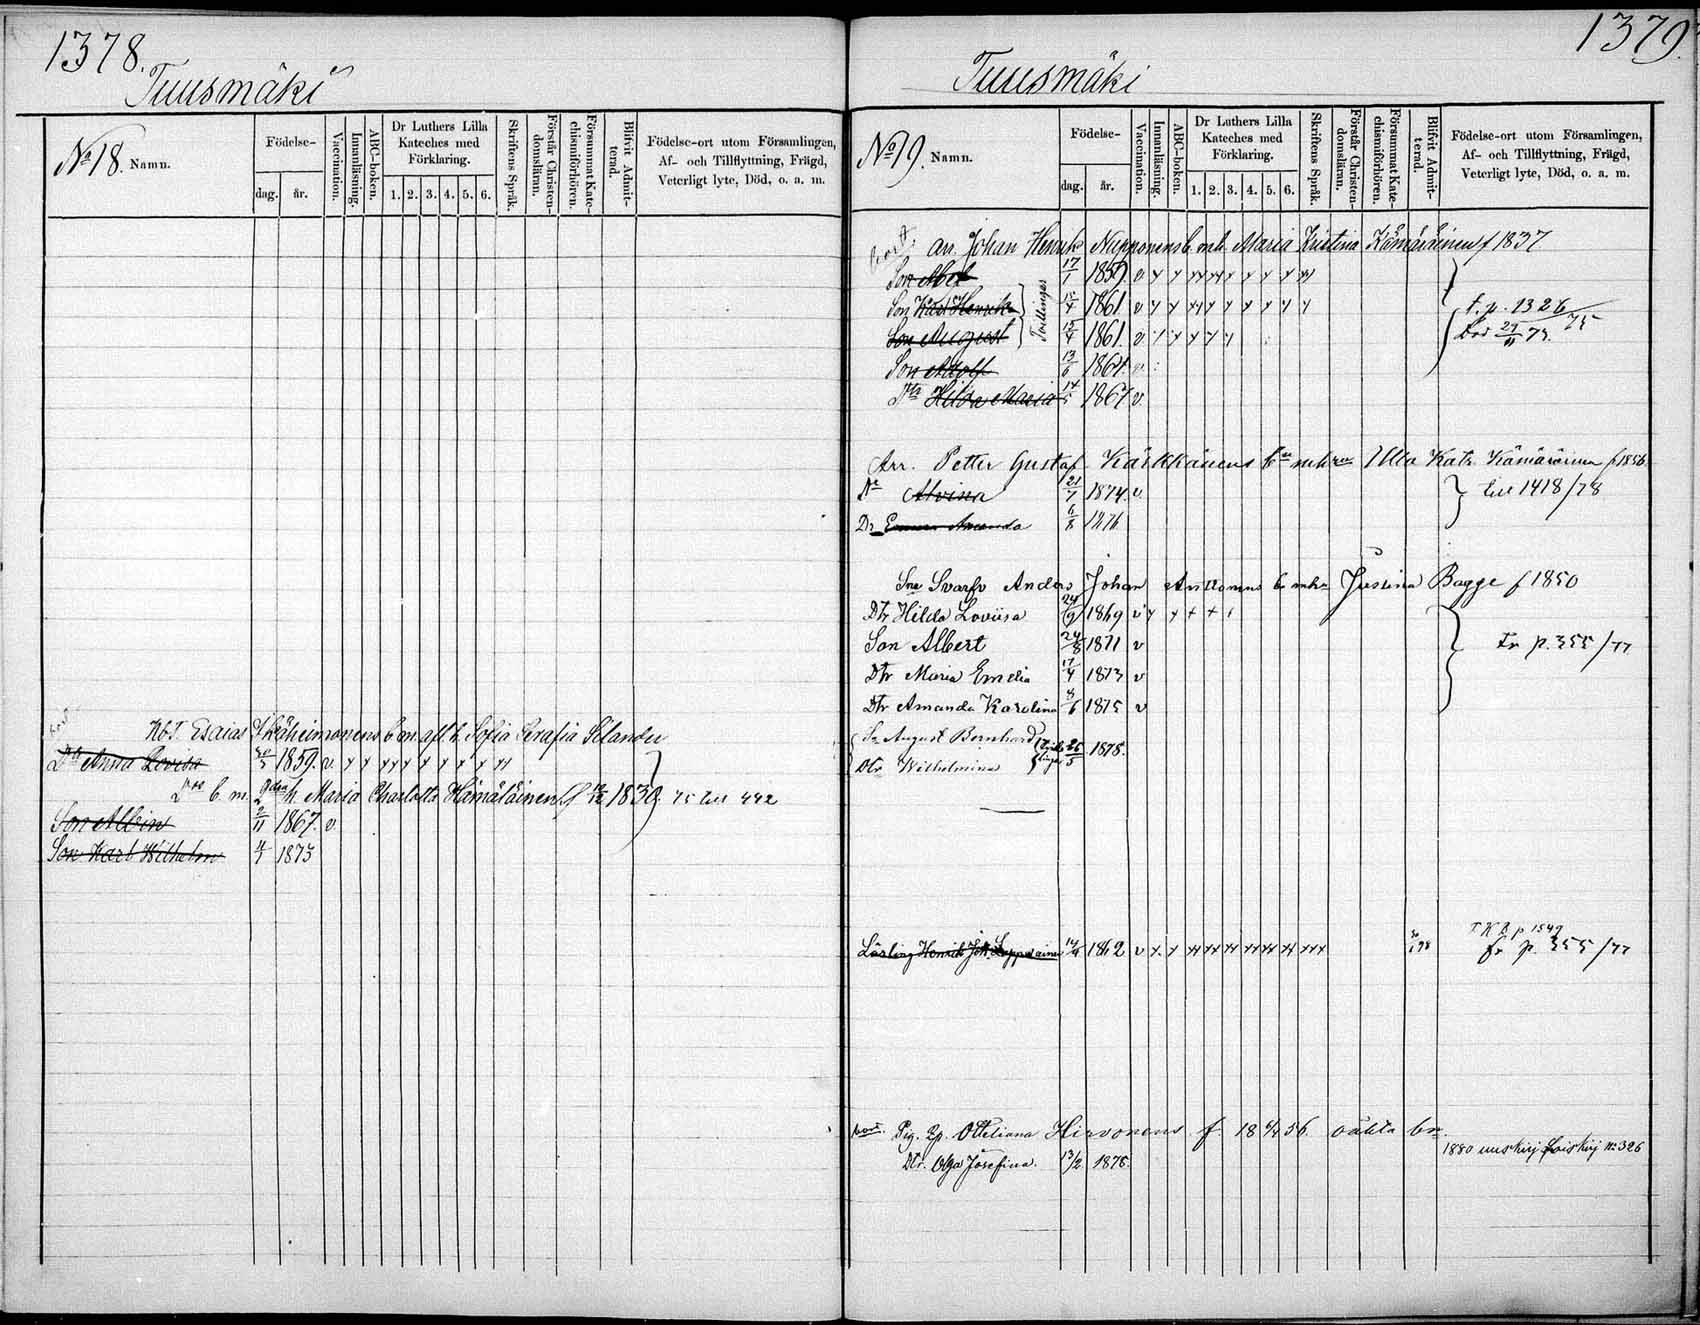 1378.
Tuusmäki
No 18. Namn.
Födelse-
dag. år.
Vaccination.
Innanläsning.
ABC-boken.
Dr Luthers Lilla Kateches med Förklaring.
1. 2. 3. 4. 5. 6.
Skriftens Språk.
Förstår Christendomsläran.
Försummat Katechismiförhören.
Blifvit Admitterad.
Födelse-ort utom Församlingen,
Af- och Tillflyttning, Frägd,
Veterligt lyte, Död, o. a. m.
Esaias barn m. afl. h. Sofia Serafia Selander
Dtr Anna Lovisa 1859. v.
b. m. 2dra h. Maria Charlotta Hämäläinen f. 1830. 75 till 442
Son Albin 2/11 1867. v.
Son Karl Wilhelm 4/1 1873
1379.
Tuusmäki
No 19. Namn.
Födelse-
dag. år.
Vaccination.
Innanläsning.
ABC-boken.
Dr Luthers Lilla Kateches med Förklaring.
1. 2. 3. 4. 5. 6.
Skriftens Språk.
Förstår Christendomsläran.
Försummat Katechismiförhören.
Blifvit Admitterad.
Födelse-ort utom Församlingen,
Af- och Tillflyttning, Frägd,
Veterligt lyte, Död, o. a. m.
bort. Arr. Johan Henrik Nupponens b. m h. Maria Kristina Kämäräinen f 1837
Son Abel 17/1 1859. v
Son Karl Henrik 15/4 1861 v t. p. 1326/75
Tvillingar
Son August 15/4 1861. v Död 29/11 73.
Son Adolf 13/6 1864. v
Dtr Hilda Maria 14/5 1867 v.
Arr. Petter Gustaf Kärkkäinens bn m h Ulla Katr. Kämäräinen f 1856
Dr Alvina 21/7 1874. v. till 1418/78
Dr Emma Amanda 6/8 1876
Svarfv Anders Johan Anttonens b m h Justina Bagge f 1850
Dtr Hilda Lovisa 24/9 1869 v
Son Albert 24/8 1871 v Fr p. 355/77
Dtr Maria Emelia 17/4 1873 v
Dtr Amanda Karolina 8/6 1875 v
Sn August Bernhard 26/5 1878.
Dtr Wilhelmina
Läsling Henrik Joh. Leppäläinen 14/4 1862 v T K B p 1549
fr p. 355/77
Pig. Ottiliana Hirvonens f. 18 56 oäkta bn.
Dtr. Olga Josefina. 13/2 1878. 1880 uuskirj No 326